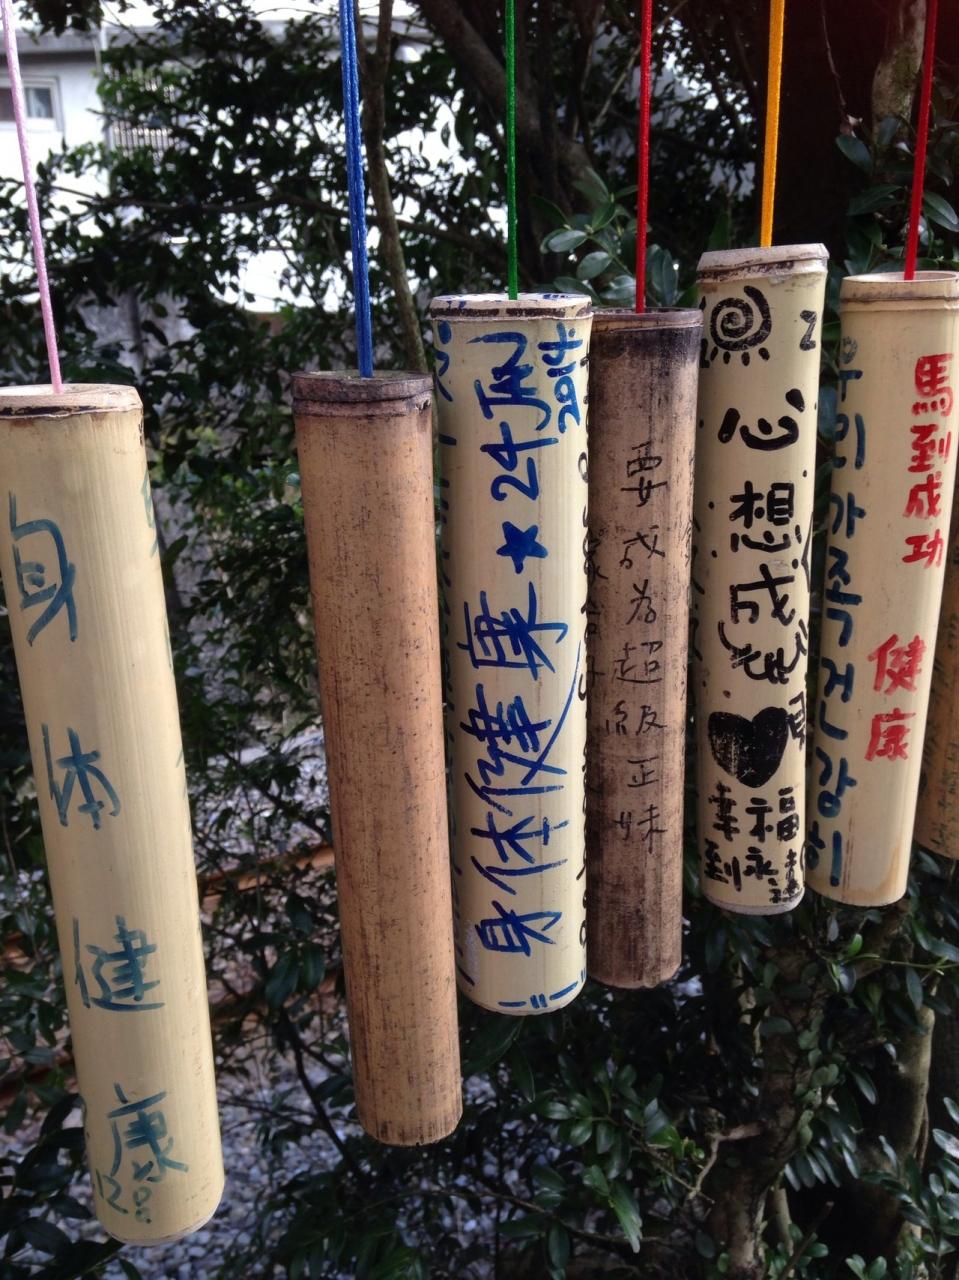 身體健康
身体健康★24 JAN
2014
要成為超級正妹
心想成
幸福
到永
우리가족건강히
馬到成功
健康